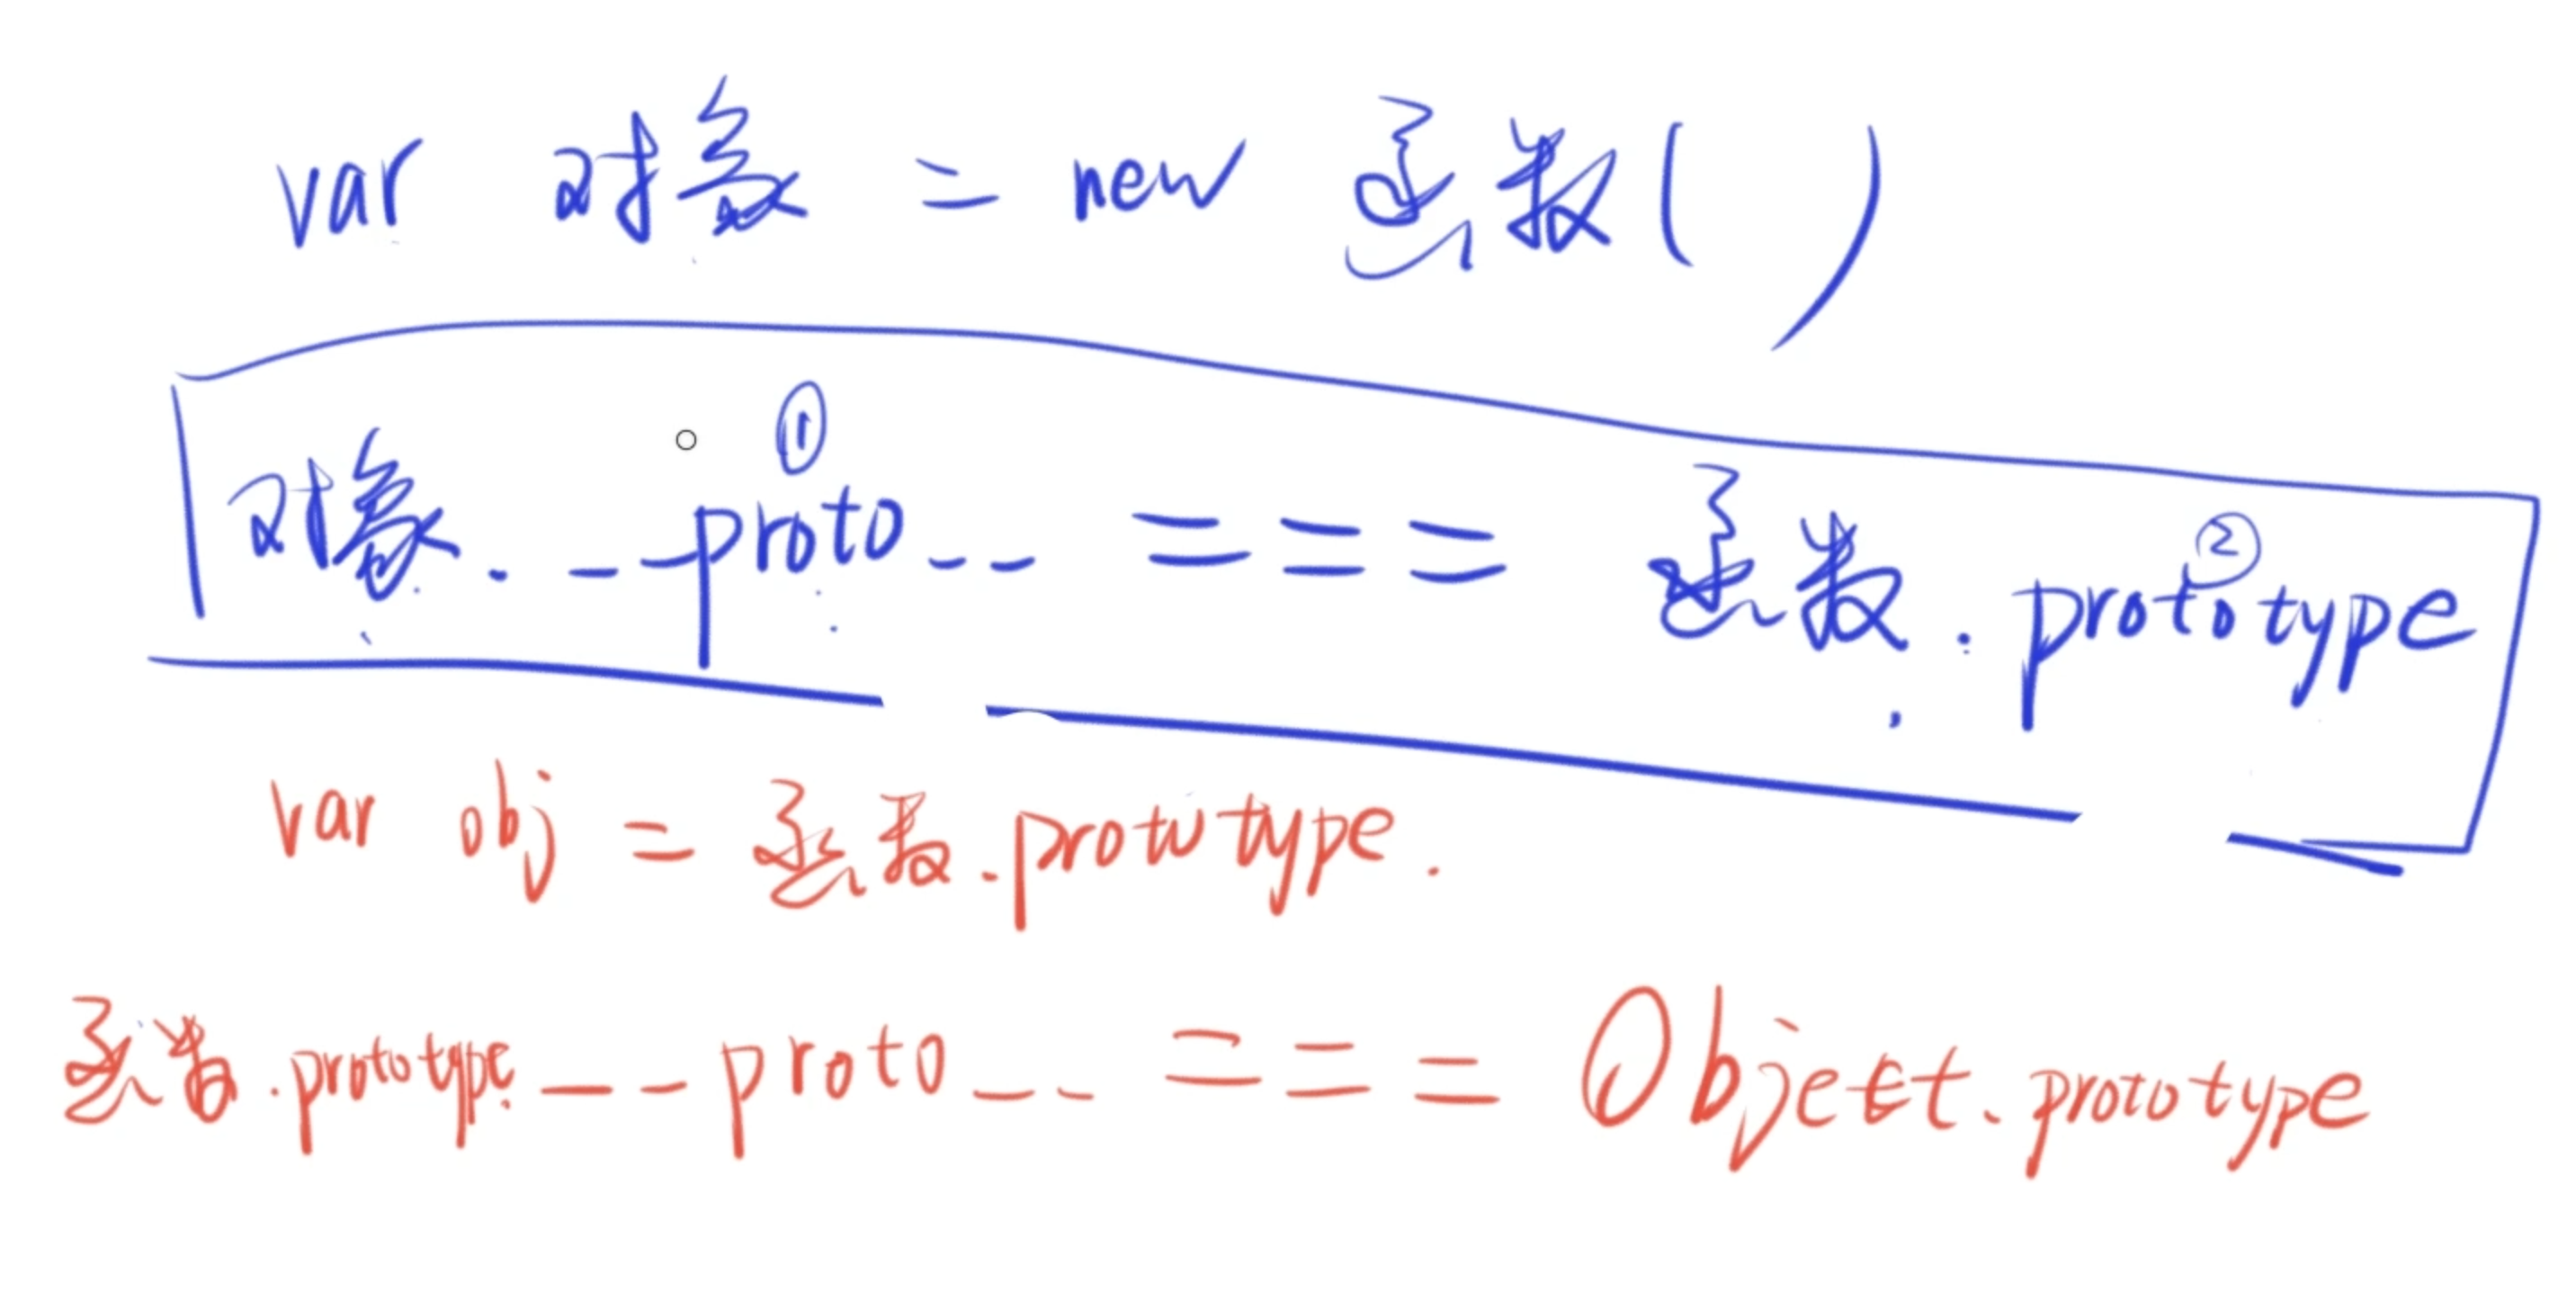 var 对象 = new 函数( )
①
对象.__proto__ === 函数.prototype
②
var obj = 函数.prototype.
函数.prototype.__proto__ === Object.prototype